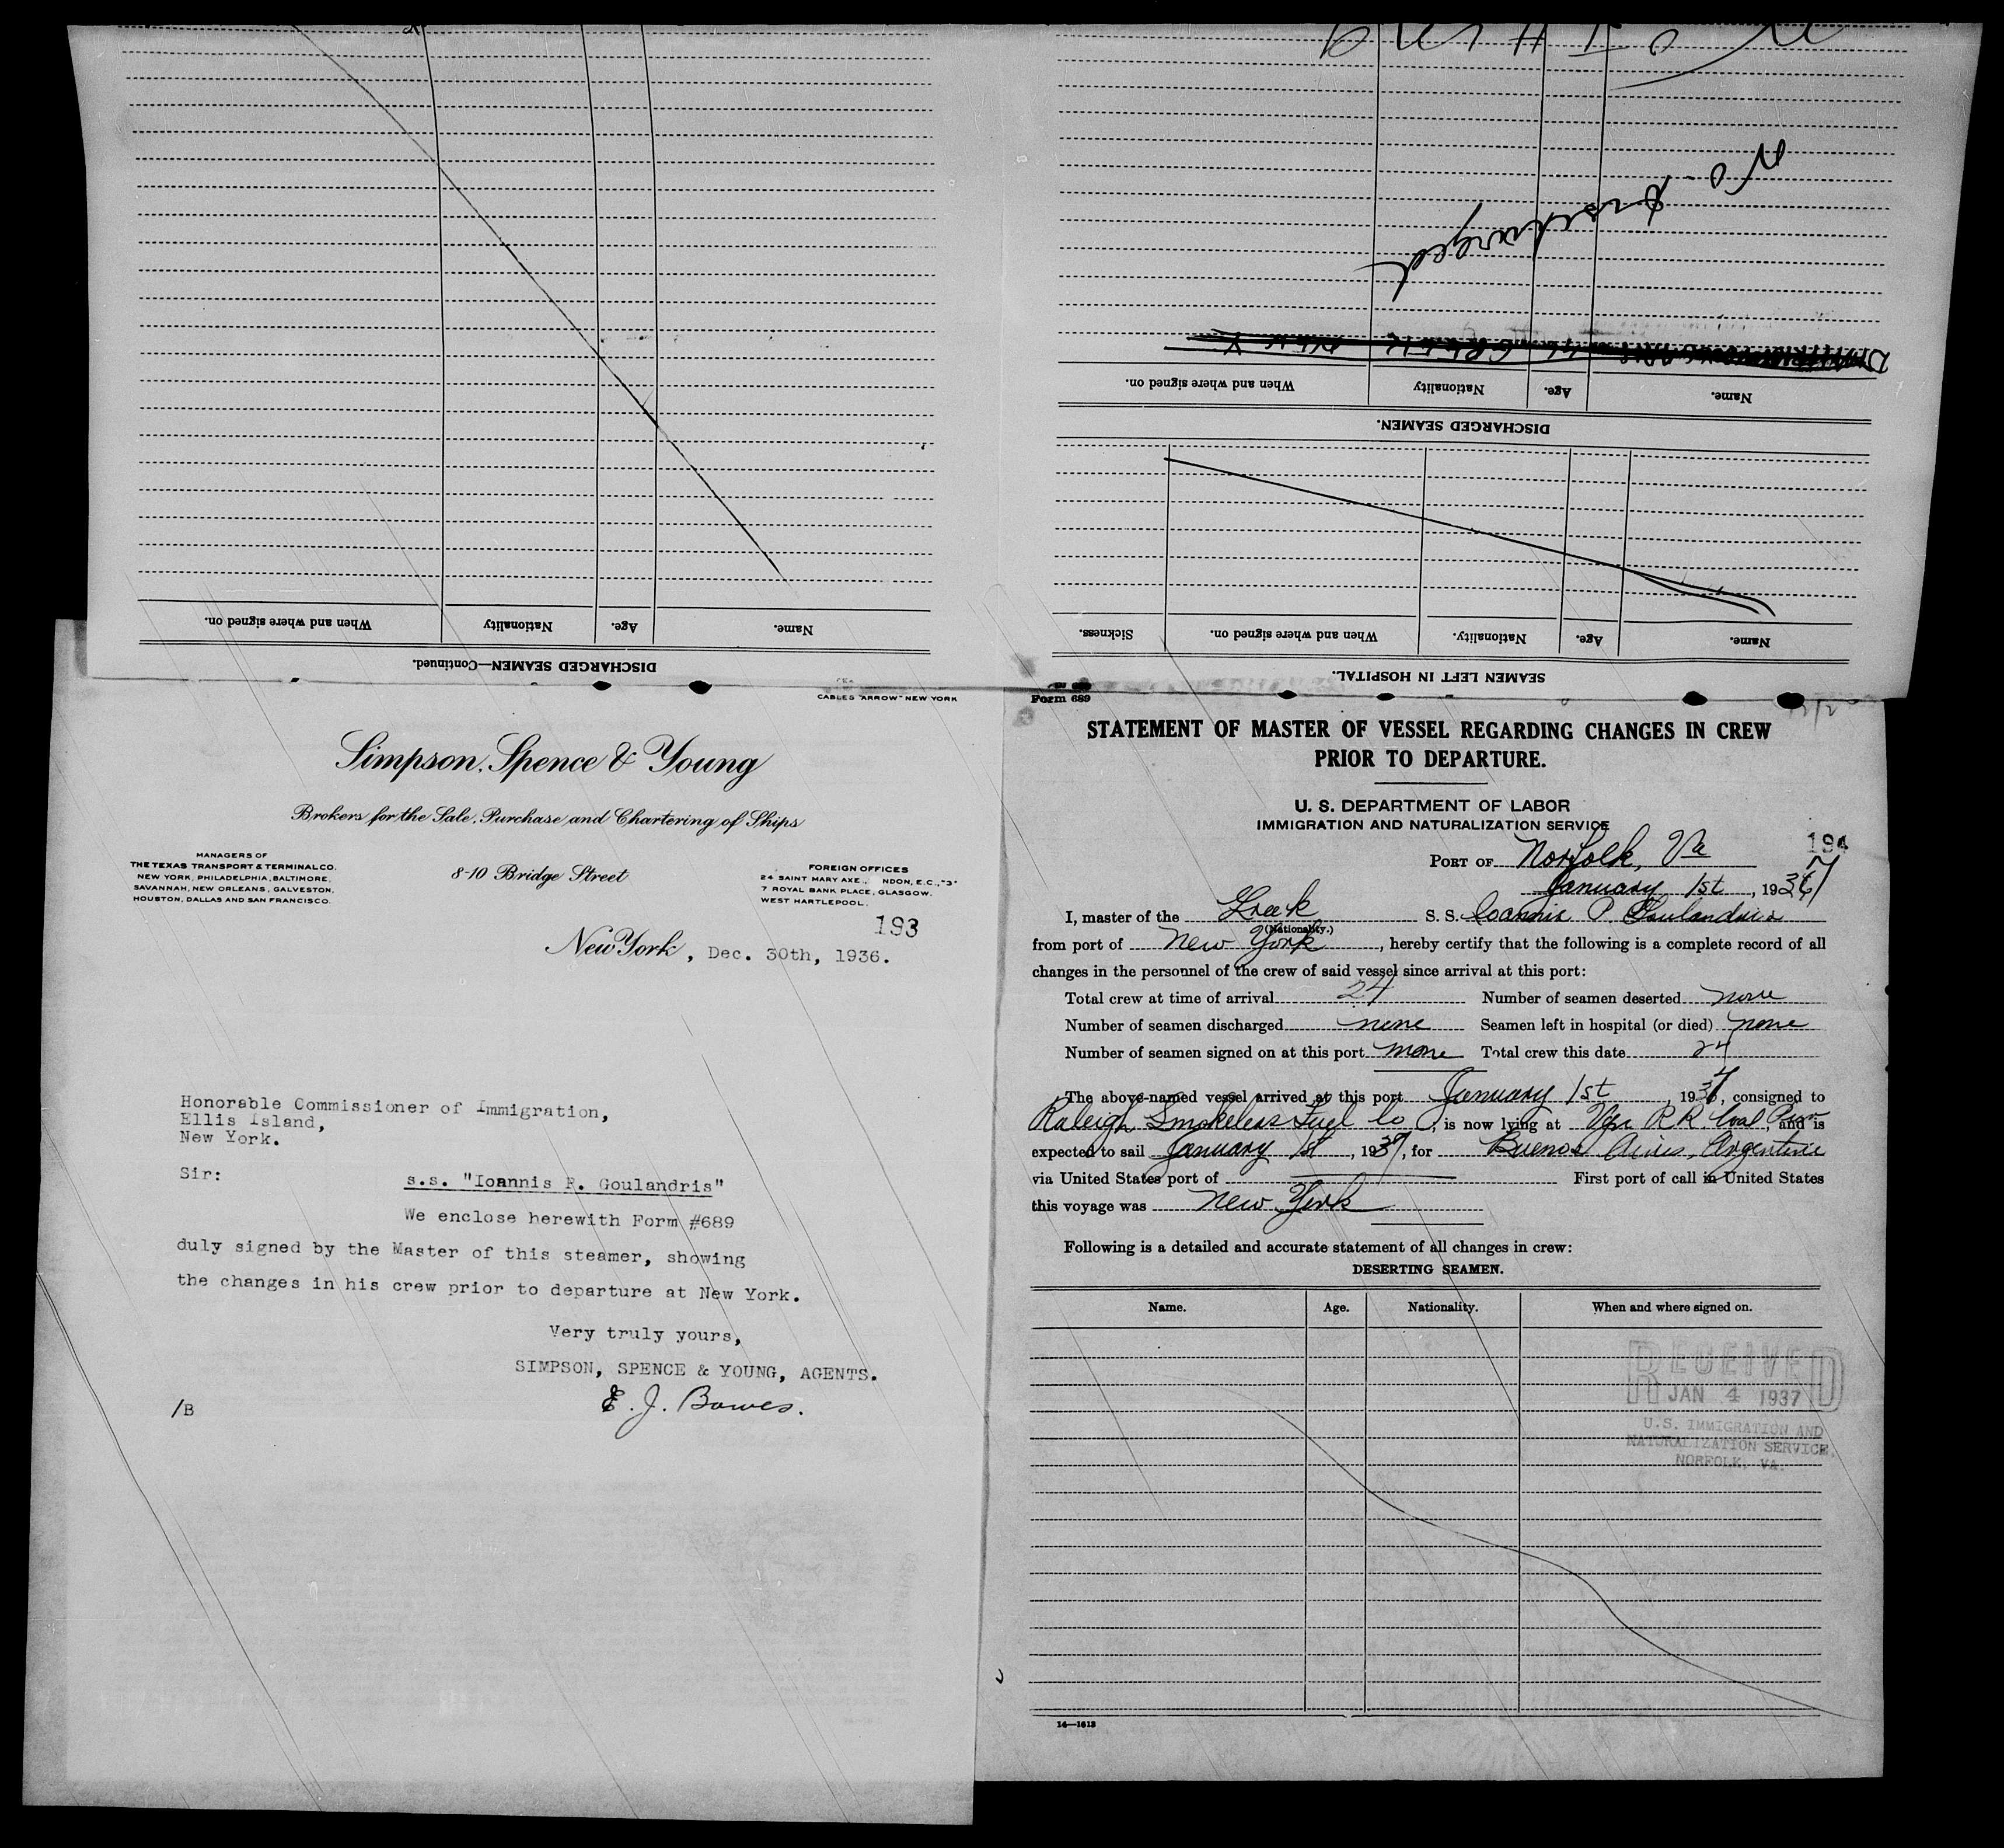 DISCHARGED SEAMEN—Continued.
Name. Age. Nationality When and where signed on.
SEAMEN LEFT IN HOSPITAL.
Name. Age. Nationality. When and where signed on. Sickness.
DISCHARGED SEAMEN.
Name. Age. Nationality When and where signed on.
GREEK NEW Y
No. Discharged
CABLES "ARROW" NEW YORK
Simpson, Spence & Young
Brokers for the Sale, Purchase and Chartering of Ships
MANAGERS OF
THE TEXAS TRANSPORT & TERMINAL CO.
NEW YORK, PHILADELPHIA, BALTIMORE,
SAVANNAH, NEW ORLEANS, GALVESTON,
HOUSTON, DALLAS AND SAN FRANCISCO.
8-10 Bridge Street
FOREIGN OFFICES
24 SAINT MARY AXE., NDON, E.C., "3"
7 ROYAL BANK PLACE, GLASGOW.
WEST HARTLEPOOL.
193
New York, Dec. 30th, 1936.
Honorable Commissioner of Immigration,
Ellis Island,
New York.
Sir:
s.s. "Ioannis P. Goulandris"
We enclose herewith Form #689
duly signed by the Master of this steamer, showing
the changes in his crew prior to departure at New York.
Very truly yours,
SIMPSON, SPENCE & YOUNG, AGENTS.
E. J. Bowes.
/B
Form 689
STATEMENT OF MASTER OF VESSEL REGARDING CHANGES IN CREW
PRIOR TO DEPARTURE.
U. S. DEPARTMENT OF LABOR
IMMIGRATION AND NATURALIZATION SERVICE
194
PORT OF Norfolk, Va
January 1st, 1937
I, master of the Greek S. S. Ioannis P. Goulandris
(Nationality.)
from port of New York, hereby certify that the following is a complete record of all
changes in the personnel of the crew of said vessel since arrival at this port:
Total crew at time of arrival 24 Number of seamen deserted none
Number of seamen discharged none Seamen left in hospital (or died) none
Number of seamen signed on at this port none Total crew this date 24
The above-named vessel arrived at this port January 1st, 1937, consigned to
Raleigh Smokeless Fuel Co, is now lying at Vgn R R Coal Pier, and is
expected to sail January 1st, 1937, for Buenos Aires, Argentine
via United States port of First port of call in United States
this voyage was New York
Following is a detailed and accurate statement of all changes in crew:
DESERTING SEAMEN.
Name. Age. Nationality. When and where signed on.
RECEIVED
JAN 4 1937
U.S. IMMIGRATION AND
NATURALIZATION SERVICE,
NORFOLK, VA.
14—1613